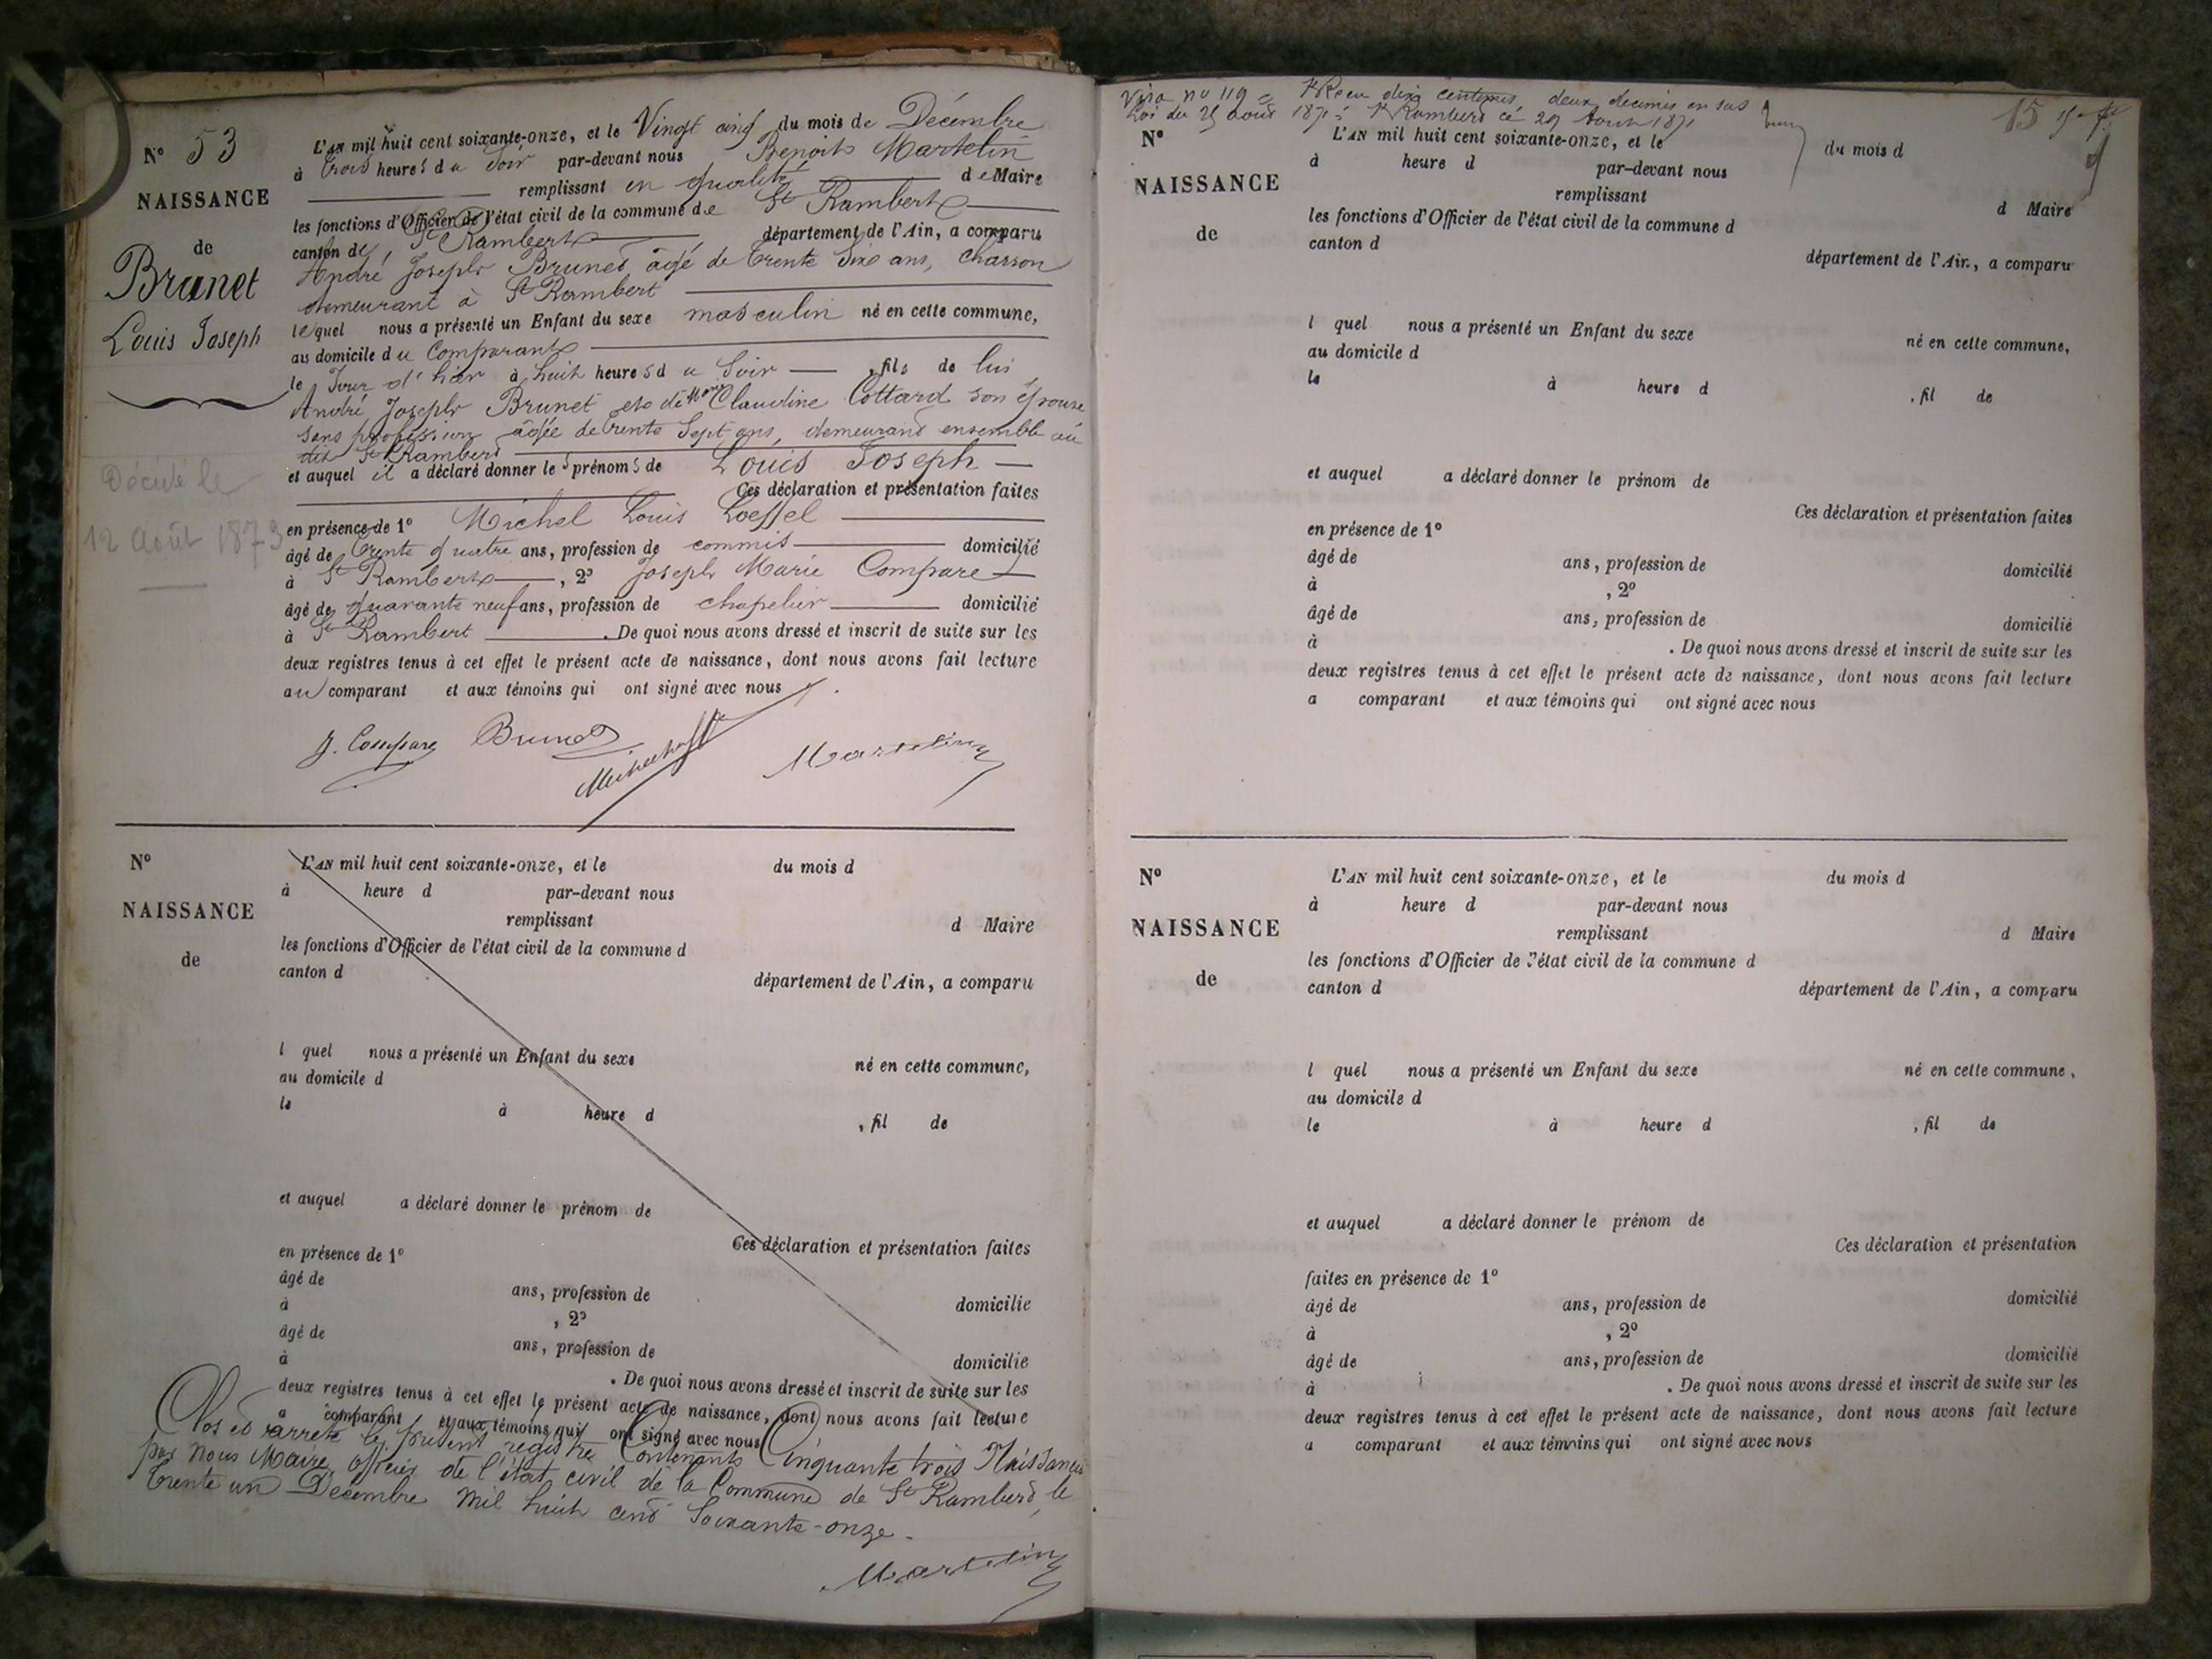 N° 53
NAISSANCE
de
Brunet
Louis Joseph
Décédé le
12 Août 1873
L'AN mil huit cent soixante-onze, et le Vingt cinq du mois de Décembre
à trois heures du Soir par-devant nous Benoit Martelin
remplissant en qualité de Maire
les fonctions d'Officier de l'état civil de la commune de St Rambert
canton de St Rambert département de l'Ain, a comparu
André Joseph Brunet âgé de trente six ans, charron
demeurant à St Rambert
lequel nous a présenté un Enfant du sexe masculin né en cette commune,
au domicile du Comparant
le Jour d'hier à huit heures du Soir, fils de lui
André Joseph Brunet et de Mie Claudine Cottard son épouse
sans profession âgée de trente Sept ans, demeurant ensemble au
dit St Rambert
et auquel il a déclaré donner les prénoms de Louis Joseph
Ces déclaration et présentation faites
en présence de 1° Michel Louis Loeffel
âgé de trente quatre ans, profession de commis domicilié
à St Rambert, 2° Joseph Marie Compare
âgé de quarante neuf ans, profession de chapelier domicilié
à St Rambert. De quoi nous avons dressé et inscrit de suite sur les
deux registres tenus à cet effet le présent acte de naissance, dont nous avons fait lecture
au comparant et aux témoins qui ont signé avec nous.
J. Compare Brunet
Martelin
N°
NAISSANCE
de
L'AN mil huit cent soixante-onze, et le du mois d
à heure d par-devant nous
remplissant d Maire
les fonctions d'Officier de l'état civil de la commune d
canton d département de l'Ain, a comparu
l quel nous a présenté un Enfant du sexe né en cette commune,
au domicile d
le à heure d , fil de
et auquel a déclaré donner le prénom de
Ces déclaration et présentation faites
en présence de 1°
âgé de ans, profession de domicilié
à , 2°
âgé de ans, profession de domicilié
à . De quoi nous avons dressé et inscrit de suite sur les
deux registres tenus à cet effet le présent acte de naissance, dont nous avons fait lecture
a comparant et aux témoins qui ont signé avec nous
Clos et arrêté le présent registre Contenant Cinquante trois Naissances
par nous Maire officier de l'état civil de la Commune de St Rambert, le
trente un Décembre mil huit cent Soixante-onze.
Martelin
Visa no 119 Reçu dix centimes, deux décimes en sus
Loi du 23 août 1871. St Rambert ce 29 Août 1871
15
N°
NAISSANCE
de
L'AN mil huit cent soixante-onze, et le du mois d
à heure d par-devant nous
remplissant d Maire
les fonctions d'Officier de l'état civil de la commune d
canton d département de l'Ain, a comparu
l quel nous a présenté un Enfant du sexe né en cette commune,
au domicile d
le à heure d , fil de
et auquel a déclaré donner le prénom de
Ces déclaration et présentation faites
en présence de 1°
âgé de ans, profession de domicilié
à , 2°
âgé de ans, profession de domicilié
à . De quoi nous avons dressé et inscrit de suite sur les
deux registres tenus à cet effet le présent acte de naissance, dont nous avons fait lecture
a comparant et aux témoins qui ont signé avec nous
N°
NAISSANCE
de
L'AN mil huit cent soixante-onze, et le du mois d
à heure d par-devant nous
remplissant d Maire
les fonctions d'Officier de l'état civil de la commune d
canton d département de l'Ain, a comparu
l quel nous a présenté un Enfant du sexe né en cette commune,
au domicile d
le à heure d , fil de
et auquel a déclaré donner le prénom de
Ces déclaration et présentation
faites en présence de 1°
âgé de ans, profession de domicilié
à , 2°
âgé de ans, profession de domicilié
à . De quoi nous avons dressé et inscrit de suite sur les
deux registres tenus à cet effet le présent acte de naissance, dont nous avons fait lecture
a comparant et aux témoins qui ont signé avec nous